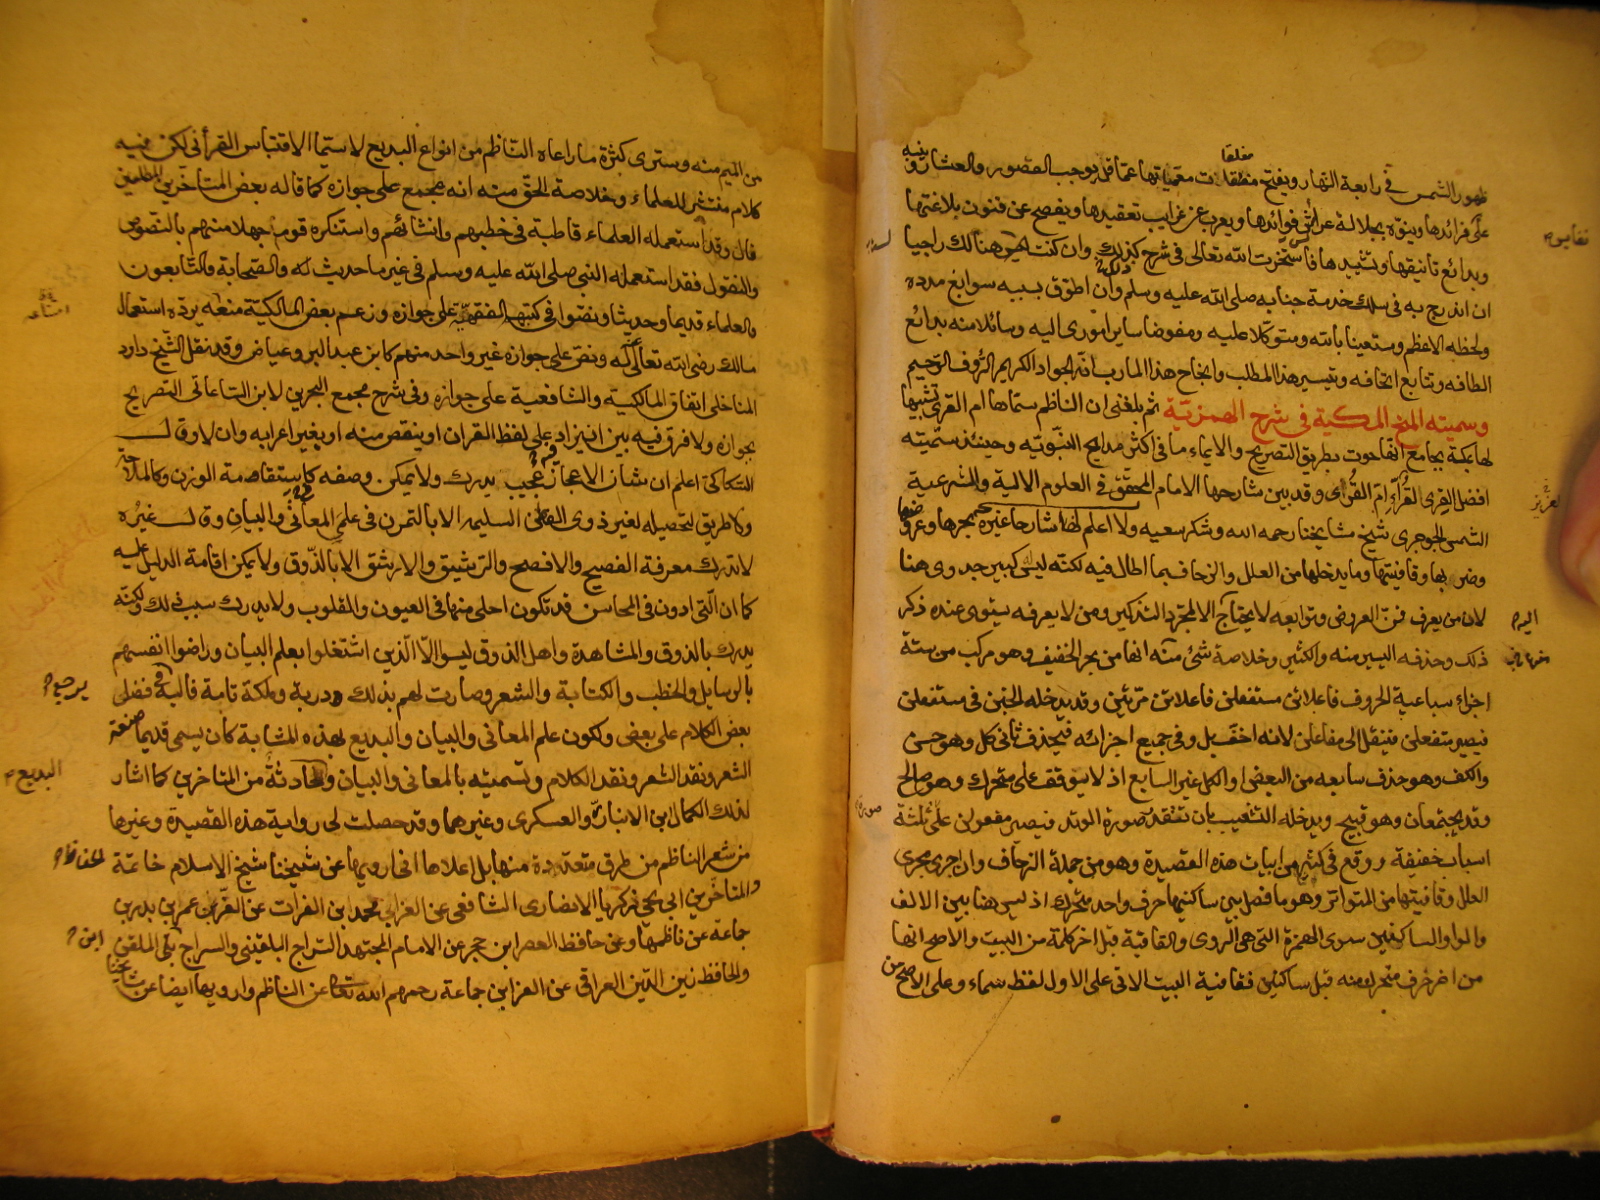 ظهور الشمس في رابعة النهار ويفتح مغلقات معمياتها عما قد يوجب القصور والعثار وينبه
على فرائدها وينوه بجلالة عرائس فوائدها ويعرب عن غرايب تعقيدها ويفصح عن فنون بلاغتها
وبدائع تانيقها وتشييدها فاستخرت الله تعالى في شرح كذلك وان كنت لست هنالك راجيا
ان اندرج به في سلك خدمة جنابه صلى الله عليه وسلم وان اطوق بسببه سوابغ مدده
ولحظه الاعظم ومستعينا بالله ومتوكلا عليه ومفوضا ساير اموري اليه وسائلا منه بدائع
الطافه وتتابع اتحافه وتيسير هذا المطلب وانجاح هذا المارب انه الجواد الكريم الرؤف الرحيم
وسميته المنح المكية في شرح الهمزية ثم بلغني ان الناظم سماها ام القرى تشبيها
لها بمكة بجامع انها حوت بطريق التصريح والايماء ما في اكثر مدايح النبوية وحينئذ سميته
افضل القرى لقراء ام القرى وقد بين شارحها الامام المحقق في العلوم الالية والشرعية
الشمس الجوجري شيخ مشايخنا رحمه الله وشكر سعيه ولا اعلم لها شارحا غيره بحرها وعروضها
وضربها وقافيتها وما يدخلها من العلل والزحاف بما اطال فيه لكنه ليس كبير جدوى هنا
لان من يعرف فن العروض وتوابعه لا يحتاج الا لمجرد التذكير ومن لا يعرفه يستوي عنده ذكر
ذلك وحذفه اليسير منه والكثير وخلاصة شئ منه انها من بحر الخفيف وهو مركب من ستة
اجزاء سباعية الحروف فاعلاتن مستفعلن فاعلاتن مرتين وقد يدخله الخبن في مستفعلن
فيصير متفعلن فينقل الى مفاعلن لانه اخف بل وفي جميع اجزائه فيحذف ثاني كل وهو حسن
والكف وهو حذف سابعه من البعض او الكل غير السابع اذ لا يوقف على متحرك وهو صالح
وقد يجتمعان وهو قبيح ويدخله التشعيث بان تنقد صورة الوتد فيصير مفعولن على ثلثة
اسباب خفيفة ووقع في كثير من ابيات هذه القصيدة وهو من جملة الزحاف وان اجري مجرى
العلل وقافيتها من المتواتر وهو ما فصل بين ساكنيها حرف واحد متحرك اذ ليس هنا بين الالف
والواو الساكنين سوى الهمزة التي هي الروي والقافية قيل اخر كلمة من البيت والاصح انها
من اخر حرف متحرك منه قبل ساكنين فقافية البيت الاتي على الاول لفظ سماء وعلى الاصح من
نفايس
اليه
صورة
من الميم منه وسترى كثرة ما راعاه الناظم من انواع البديع لا سيما الاقتباس القرآني لكن فيه
كلام منتشر للعلماء وخلاصة الحق منه انه مجمع على جوازه كما قاله بعض المتأخرين المطلعين
قال وقد استعمله العلماء قاطبة في خطبهم وانشائهم واستنكره قوم جهلا منهم بالنصوص
والنقول فقد استعمله النبي صلى الله عليه وسلم في غير ما حديث له والصحابة والتابعون
والعلماء قديما وحديثا ونصوا في كتبهم الفقهية على جوازه وزعم بعض المالكية منعه يرده استعمال
مالك رضي الله تعالى له ونص على جوازه غير واحد منهم كابن عبد البر وعياض وقد نقل الشيخ داود
المناخلي اتفاق المالكية والشافعية على جوازه وفي شرح مجمع البحرين لابن الساعاتي التصريح
بجوازه ولا فرق فيه بين ان يزاد على لفظ القران او ينقص منه او يغير اعرابه وان لا وقال
السكاكي اعلم ان شان الاعجاز عجيب يدرك ولا يمكن وصفه كاستقامة الوزن وكالملاحة
وكا طريق لتحصيله لغير ذوي الفطن السليمة الا بالتمرن في علم المعاني والبيان وقال غيره
لا تدرك معرفة الفصيح والافصح والرشيق والارشق الا بالذوق ولا يمكن اقامة الدليل عليه
كما ان التي ادون في المحاسن قد تكون احلى منها في العيون والقلوب ولا يدرك سبب ذلك ولكنه
يدرك بالذوق والمشاهدة واهل الذوق ليسوا الا الذين اشتغلوا بعلم البيان وراضوا انفسهم
بالرسايل والخطب والكتابة والشعر وصارت لهم بذلك دربة وملكة تامة فاليه في فضل
بعض الكلام على بعض ولكون علم المعاني والبيان والبديع بهذه المثابة كان يسمى قديما صنعة
الشعر ونقد الشعر ونقد الكلام وتسميته بالمعاني والبيان حادثة من المتاخرين كما اشار
لذلك الكمال ابن الانباري والعسكري وغيرهما وقد حصلت لي رواية هذه القصيدة وغيرها
من شعر الناظم من طرق متعددة منها بل اعلاها اني ارويها عن شيخنا شيخ الاسلام خاتمة
والمتاخرين ابي يحيى زكريا الانصاري الشافعي عن العز ابي محمد ابن الفرات عن العز بن عمر بن بدر بن
جماعة عن ناظمها وعن حافظ العصر ابن حجر عن الامام المجتهد السراج البلقيني والسراج بن الملقن
والحافظ زين الدين العراقي عن العز ابن جماعة رحمهم الله تعالى عن الناظم وارويها ايضا عن مشايخنا
يرجع
البديع
الحفاظ
ابن